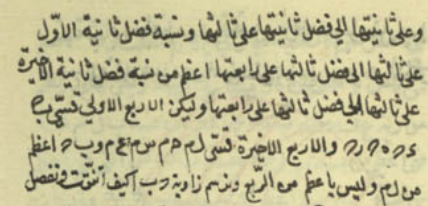 وعلى ثانيتها الى فضل ثانيتها على ثالثها ونسبة فضل ثانية الاوّل
على ثالثها الى فضل ثالثها على رابعتها اعظم من نسبة فضل ثانية الاخيرة
على ثالثها الى فضل ثالثها على رابعتها وليكن الاربع الاولي قسى ب ه
والاربع الاخيرة قسى ل م م س م ع م و ب ه اعظم
من ل م وليس باعظم من الربع ونرسم زاوية د ب ا كيف اتفقت ونفصل